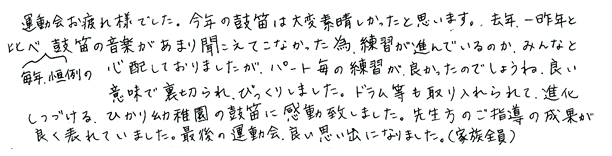 運動会お疲れ様でした。今年の鼓笛は大変素晴しかったと思います。去年、一昨年と
比べ 鼓笛の音楽があまり聞こえてこなかった為、練習が進んでいるのか、みんなと
毎年、恒例の 心配しておりましたが、パート毎の練習が、良かったのでしょうね、良い
意味で裏切られ、びっくりしました。ドラム等も取り入れられて、進化
しつづける、ひかり幼稚園の鼓笛に感動致しました。先生方のご指導の成果が
良く表れていました。最後の運動会、良い思い出になりました。(家族全員)